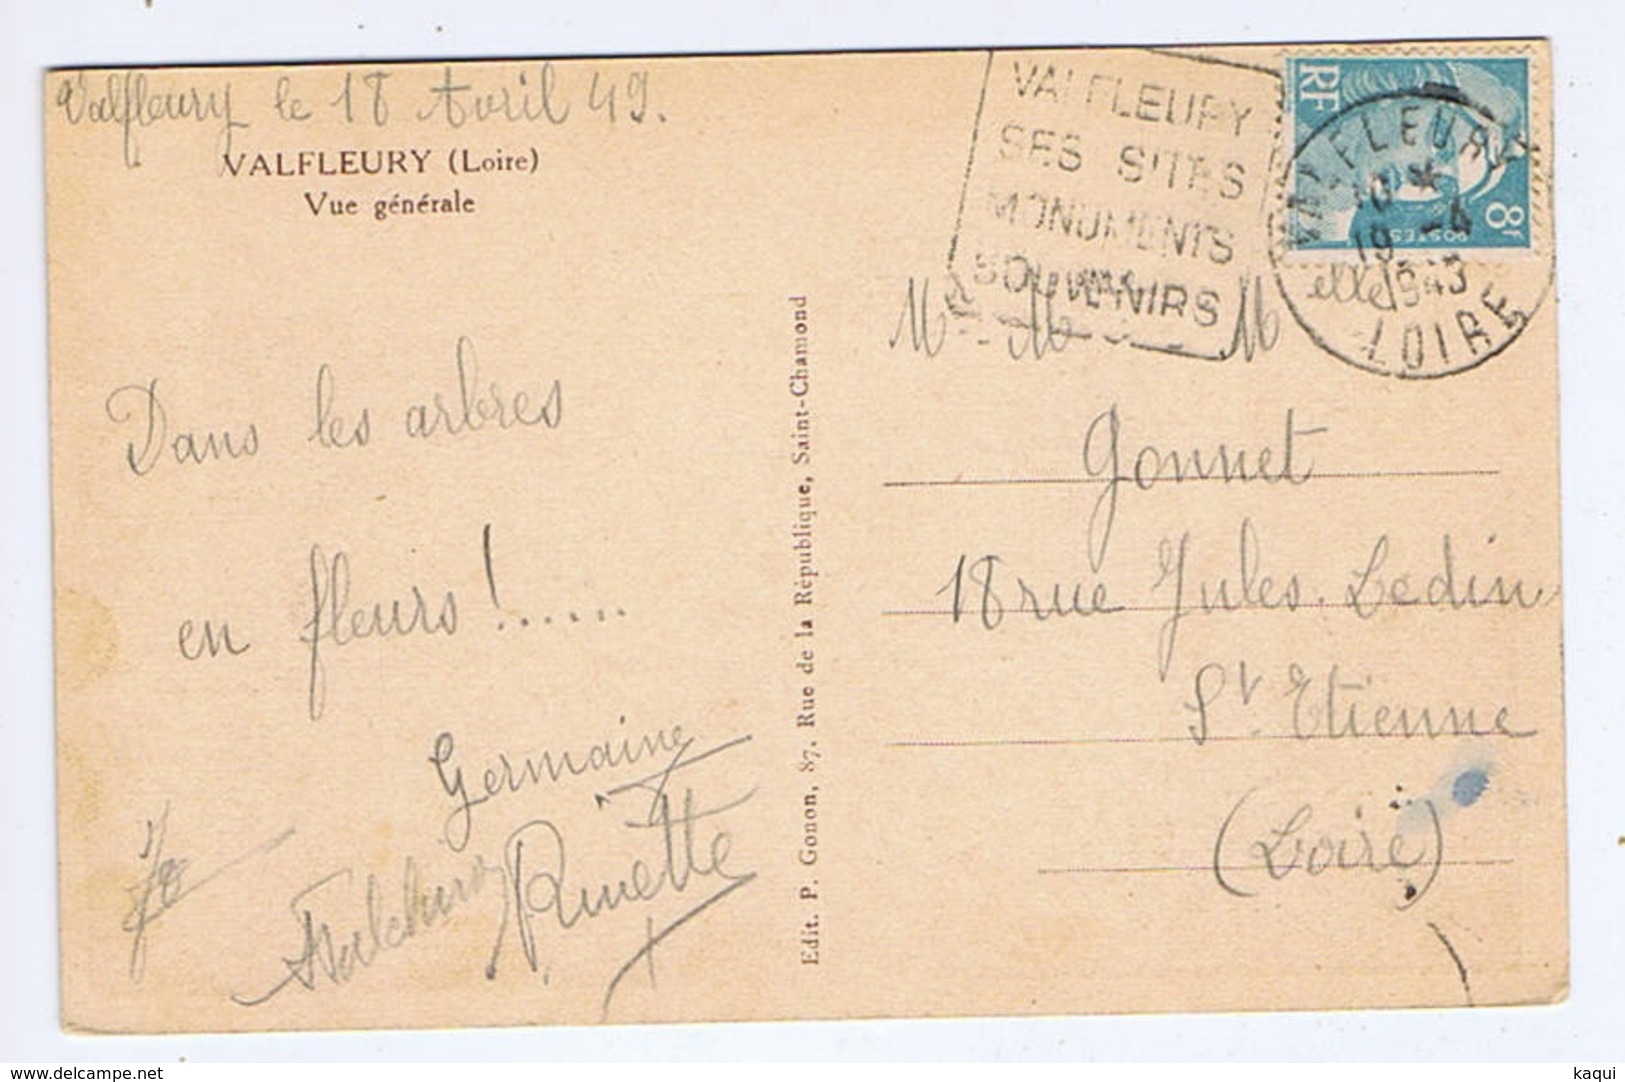 Valfleury le 18 Avril 49.
VALFLEURY (Loire)
Vue générale
Dans les arbres
en fleurs !......
Germaine
Ginette
Edit. P. Gonon, 87, Rue de la République, Saint-Chamond
VALFLEURY
SES SITES
MONUMENTS
SOUVENIRS
RF
8F
POSTES
VALFLEURY
10 *
19 -4
1949
LOIRE
Mr - Me - Melle
Gonnet
18 rue Jules Ledin
St Etienne
(Loire)
www.delcampe.net
kaqui